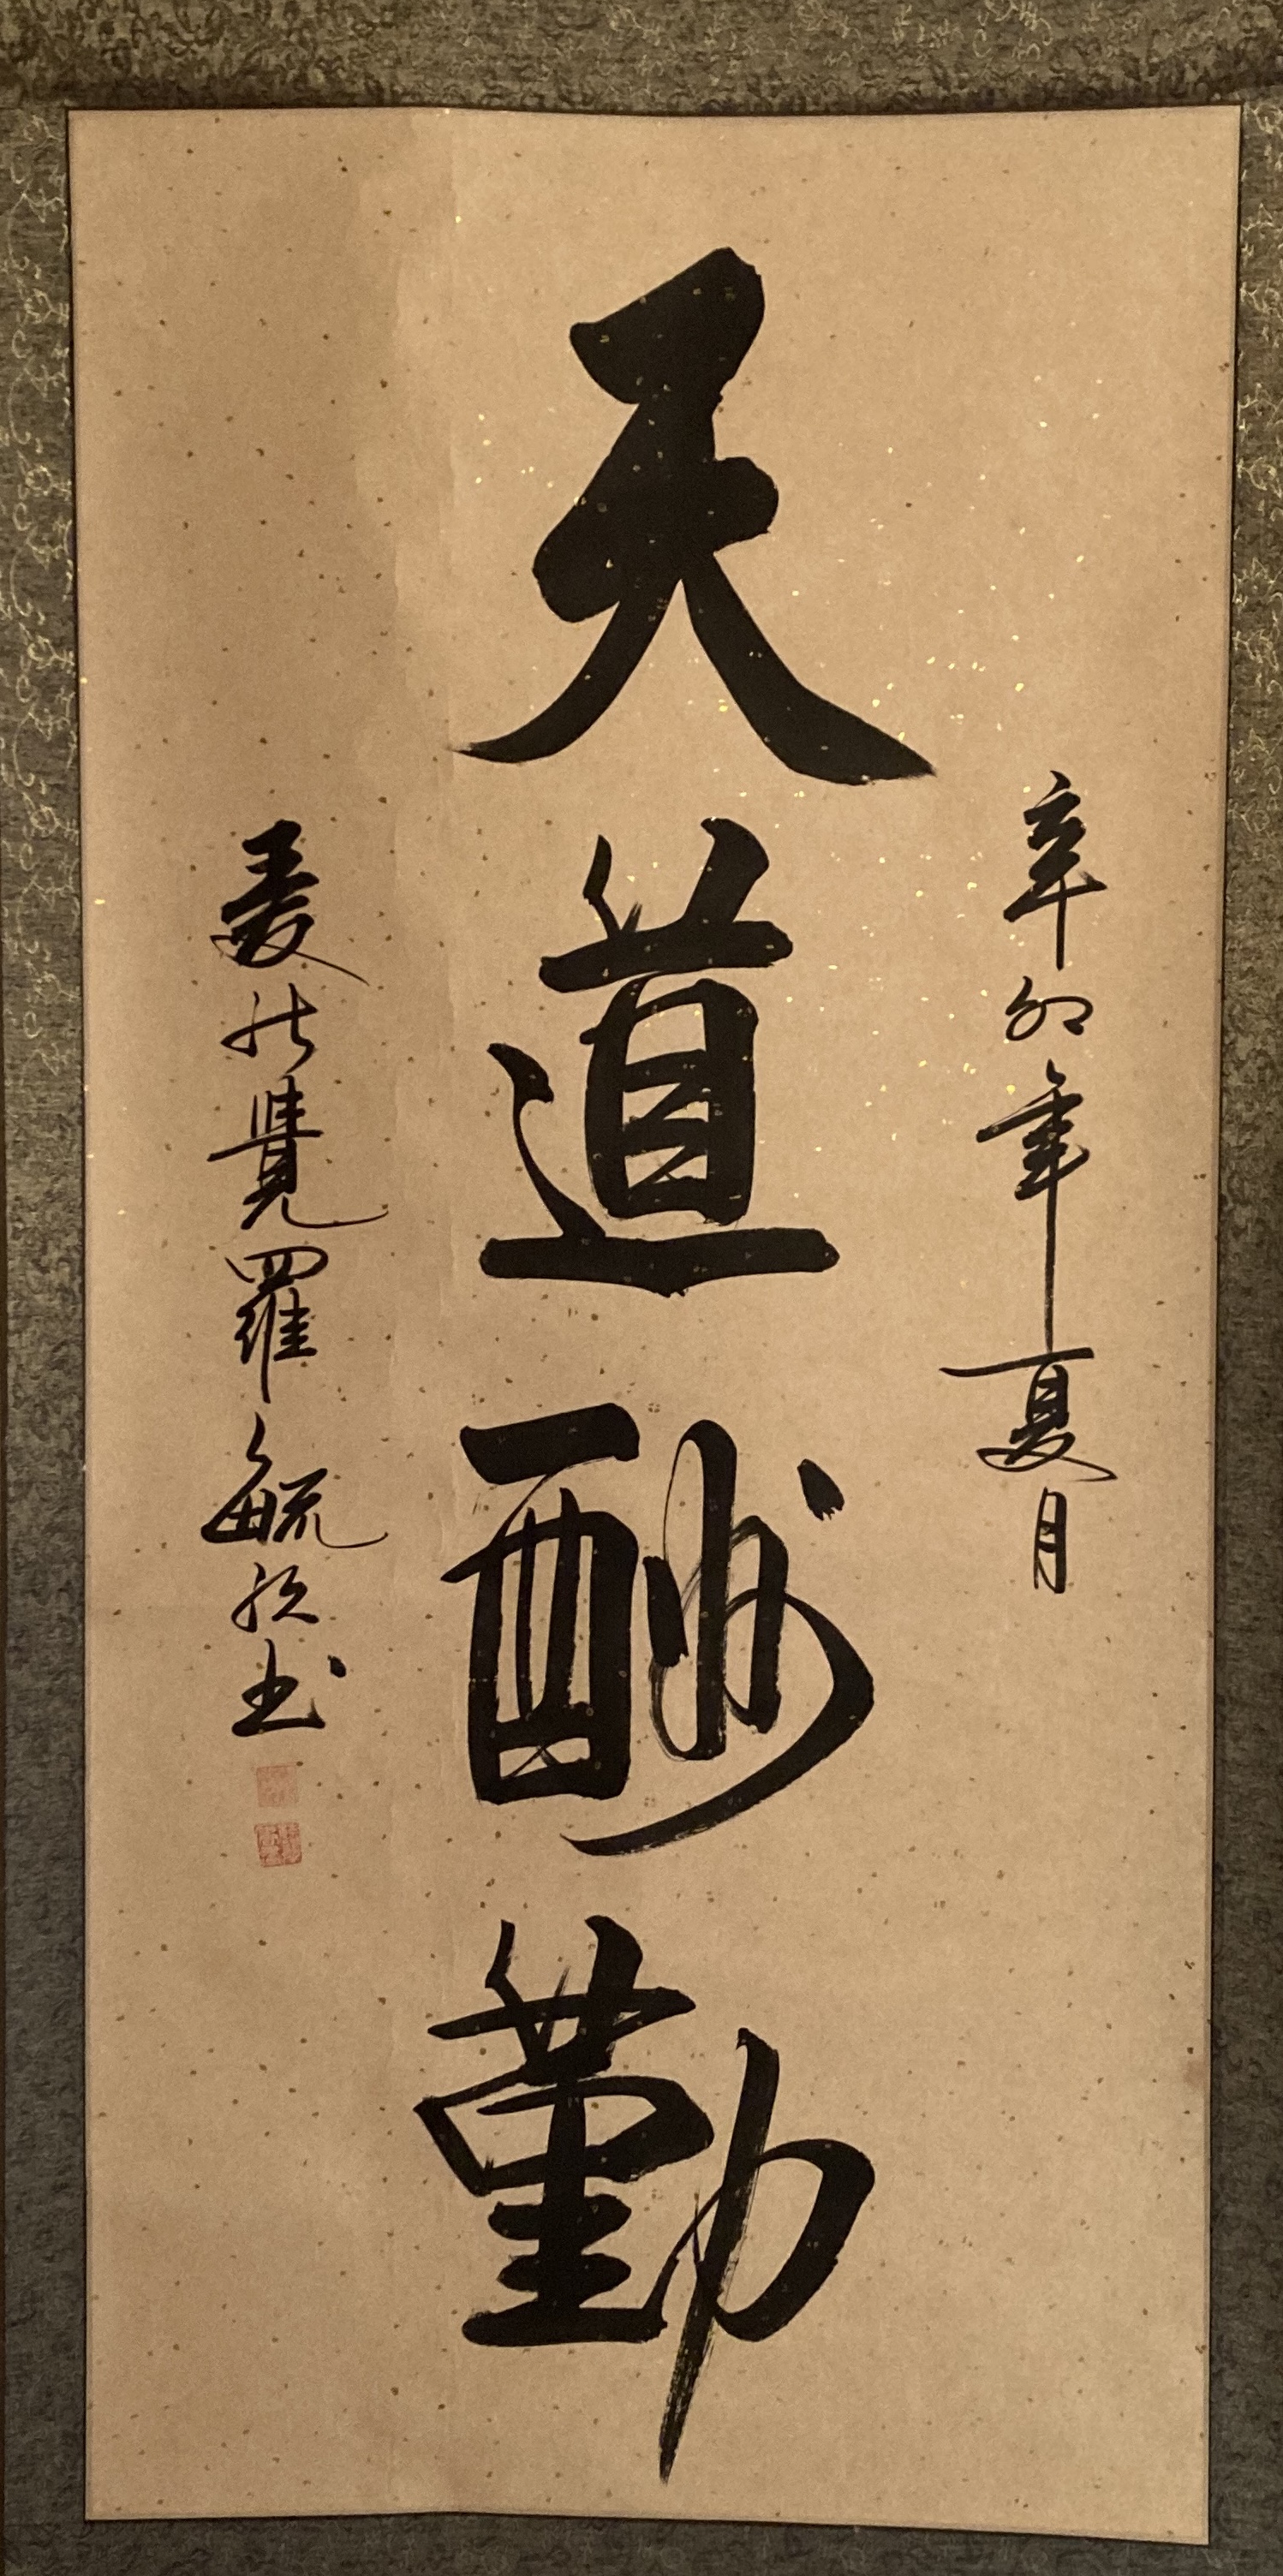 辛卯年夏月
天道酬勤
愛新覺羅毓书